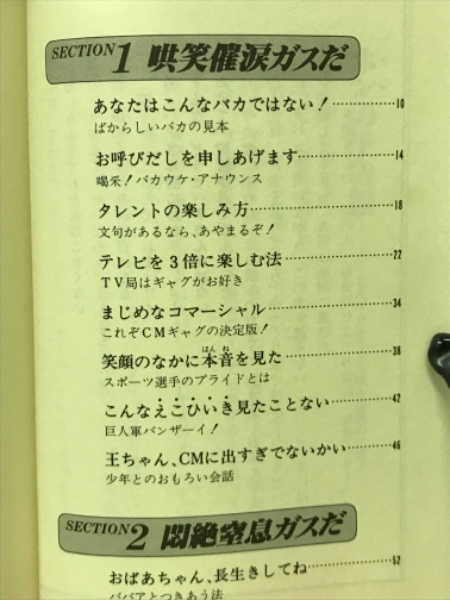 SECTION 1 哄笑催涙ガスだ
あなたはこんなバカではない!…………10
ばからしいバカの見本
お呼びだしを申しあげます…………14
喝采!バカウケ・アナウンス
タレントの楽しみ方…………18
文句があるなら、あやまるぞ!
テレビを3倍に楽しむ法…………22
TV局はギャグがお好き
まじめなコマーシャル…………34
これぞCMギャグの決定版!
笑顔のなかに本音を見た…………38
ほんね
スポーツ選手のプライドとは
こんなえこひいき見たことない…………42
巨人軍バンザーイ!
王ちゃん、CMに出すぎでないかい…………46
少年とのおもろい会話
SECTION 2 悶絶窒息ガスだ
おばあちゃん、長生きしてね…………52
ババアとつきあう法